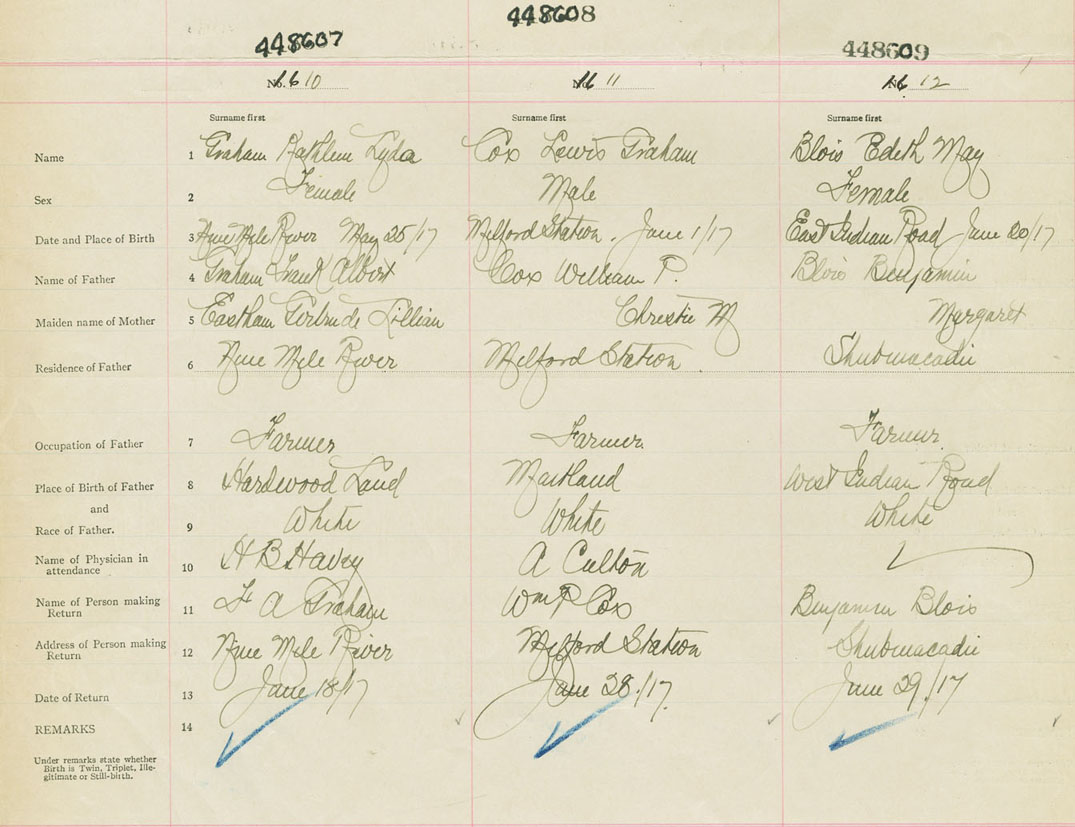 448607 448608 448609
No. 16 10 No. 16 11 No. 16 12
Surname first Surname first Surname first
Name 1 Graham Kathleen Lyda Cox Lewis Graham Blois Edith May
Sex 2 Female Male Female
Date and Place of Birth 3 Nine Mile River May 25/17 Milford Station. June 1/17 East Indian Road June 20/17
Name of Father 4 Graham Frank Albert Cox William P. Blois Benjamin
Maiden name of Mother 5 Eastham Gertrude Lillian Christie M Margaret
Residence of Father 6 Nine Mile River Milford Station Shubenacadie
Occupation of Father 7 Farmer Farmer Farmer
Place of Birth of Father 8 Hardwood Land Maitland West Indian Road
and
Race of Father. 9 White White White
Name of Physician in
attendance 10 H B Havey A Culton
Name of Person making
Return 11 F A Graham Wm P Cox Benjamin Blois
Address of Person making
Return 12 Nine Mile River Milford Station Shubenacadie
Date of Return 13 June 18/17 June 28/17 June 29/17
REMARKS 14
Under remarks state whether
Birth is Twin, Triplet, Ille-
gitimate or Still-birth.